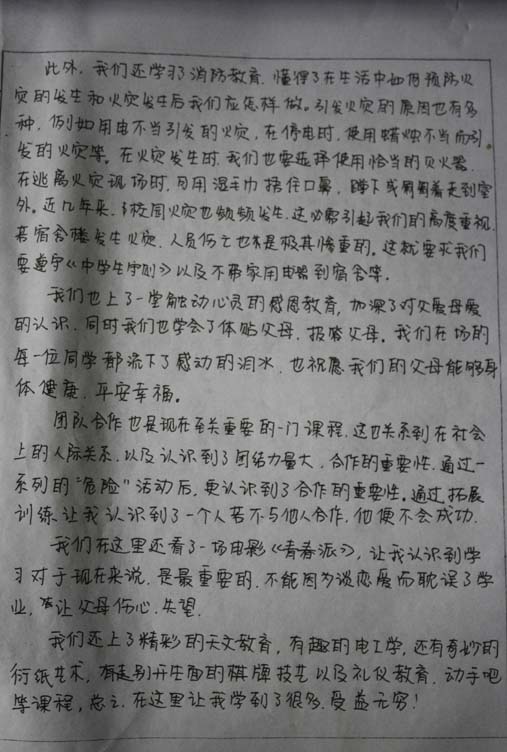 此外,我们还学习了消防教育,懂得了在生活中如何预防火
灾的发生和火灾发生后我们应怎样做。引发火灾的原因也有多
种,例如用电不当引发的火灾,在停电时,使用蜡烛不当而引
发的火灾等。在火灾发生时,我们也要选择使用恰当的灭火器,
在逃离火灾现场时,可用湿毛巾捂住口鼻,蹲下或匍匐着走到室
外。近几年来,校园火灾也频频发生,这必需引起我们的高度重视,
若宿舍楼发生火灾,人员伤亡也是极其惨重的。这就要求我们
要遵守《中学生守则》以及不带家用电器到宿舍等。
我们也上了一堂触动心灵的感恩教育,加深了对父爱母爱
的认识,同时我们也学会了体贴父母,报答父母。我们在场的
每一位同学都流下了感动的泪水,也祝愿我们的父母能够身
体健康,平安幸福。
团队合作也是现在至关重要的一门课程,这也关系到在社会
上的人际关系,以及认识到了团结力量大,合作的重要性,通过一
系列的“危险”活动后,更认识到了合作的重要性。通过拓展
训练让我认识到了一个人若不与他人合作,他便不会成功.
我们在这里还看了一场电影《青春派》,让我认识到学
习对于现在来说,是最重要的,不能因为谈恋爱而耽误了学
业,让父母伤心,失望.
我们还上了精彩的天文教育,有趣的电工学,还有奇妙的
衍纸艺术,有走别开生面的棋牌技艺以及礼仪教育,动手吧
等课程,总之,在这里让我学到了很多,受益无穷!